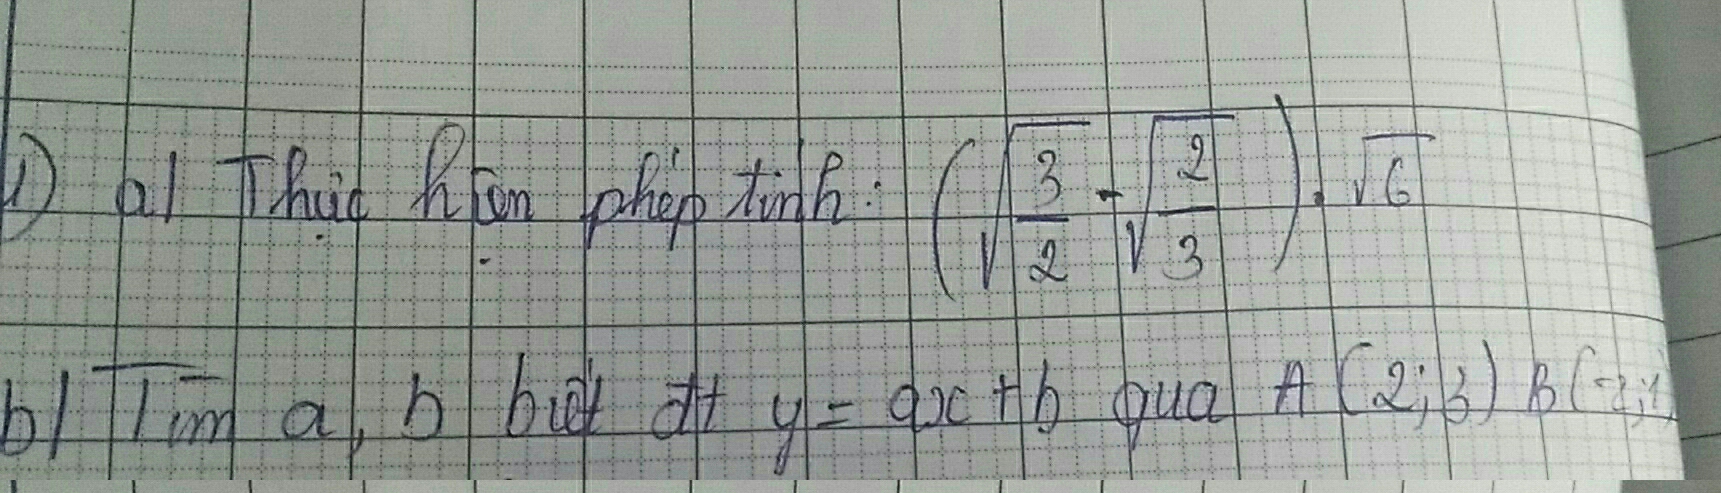 1) a) Thực hiện phép tính: (√(3/2) - √(2/3)). √6
b) Tìm a, b biết đt y = ax + b qua A (2; 3) B (-2; 1)